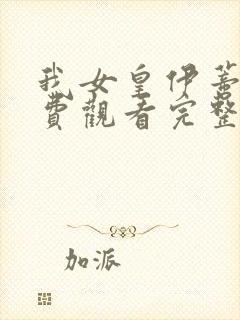 我女皇伊蕾
費觀看完整
加派